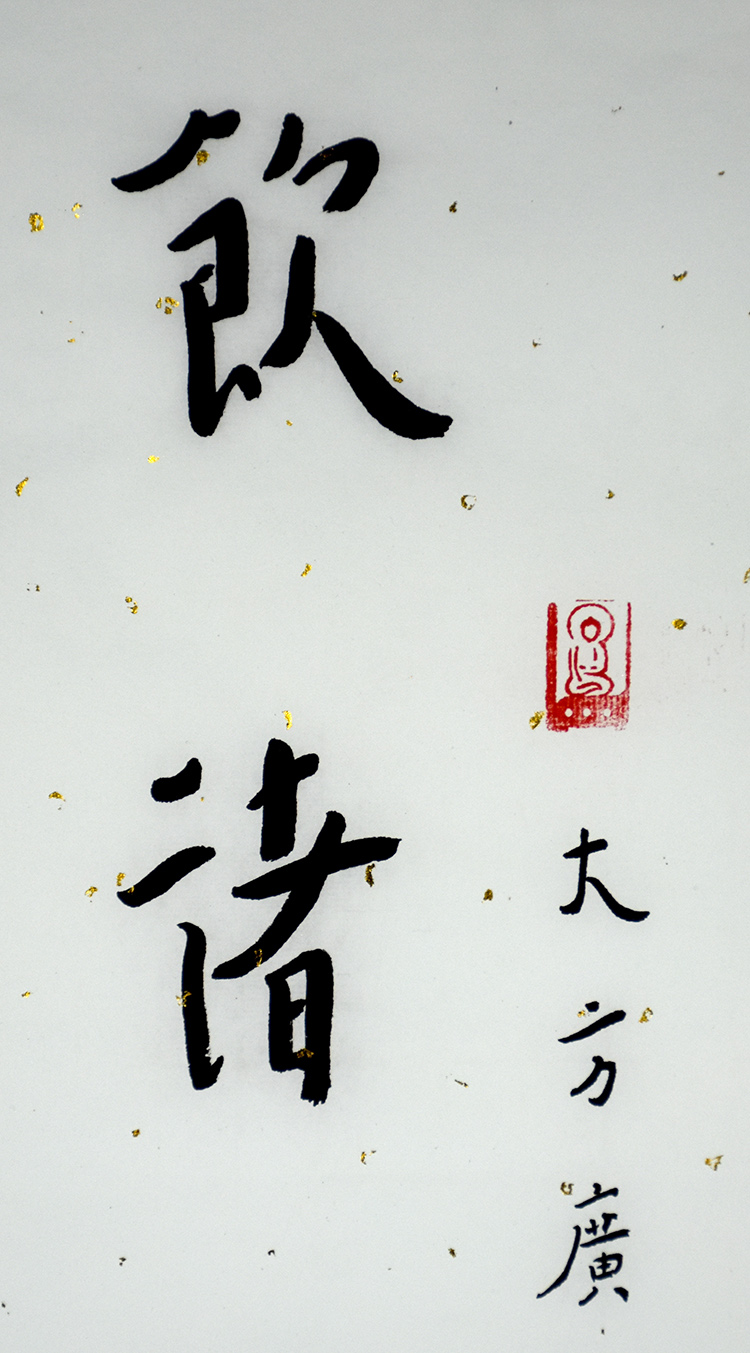 大方廣
飲諸